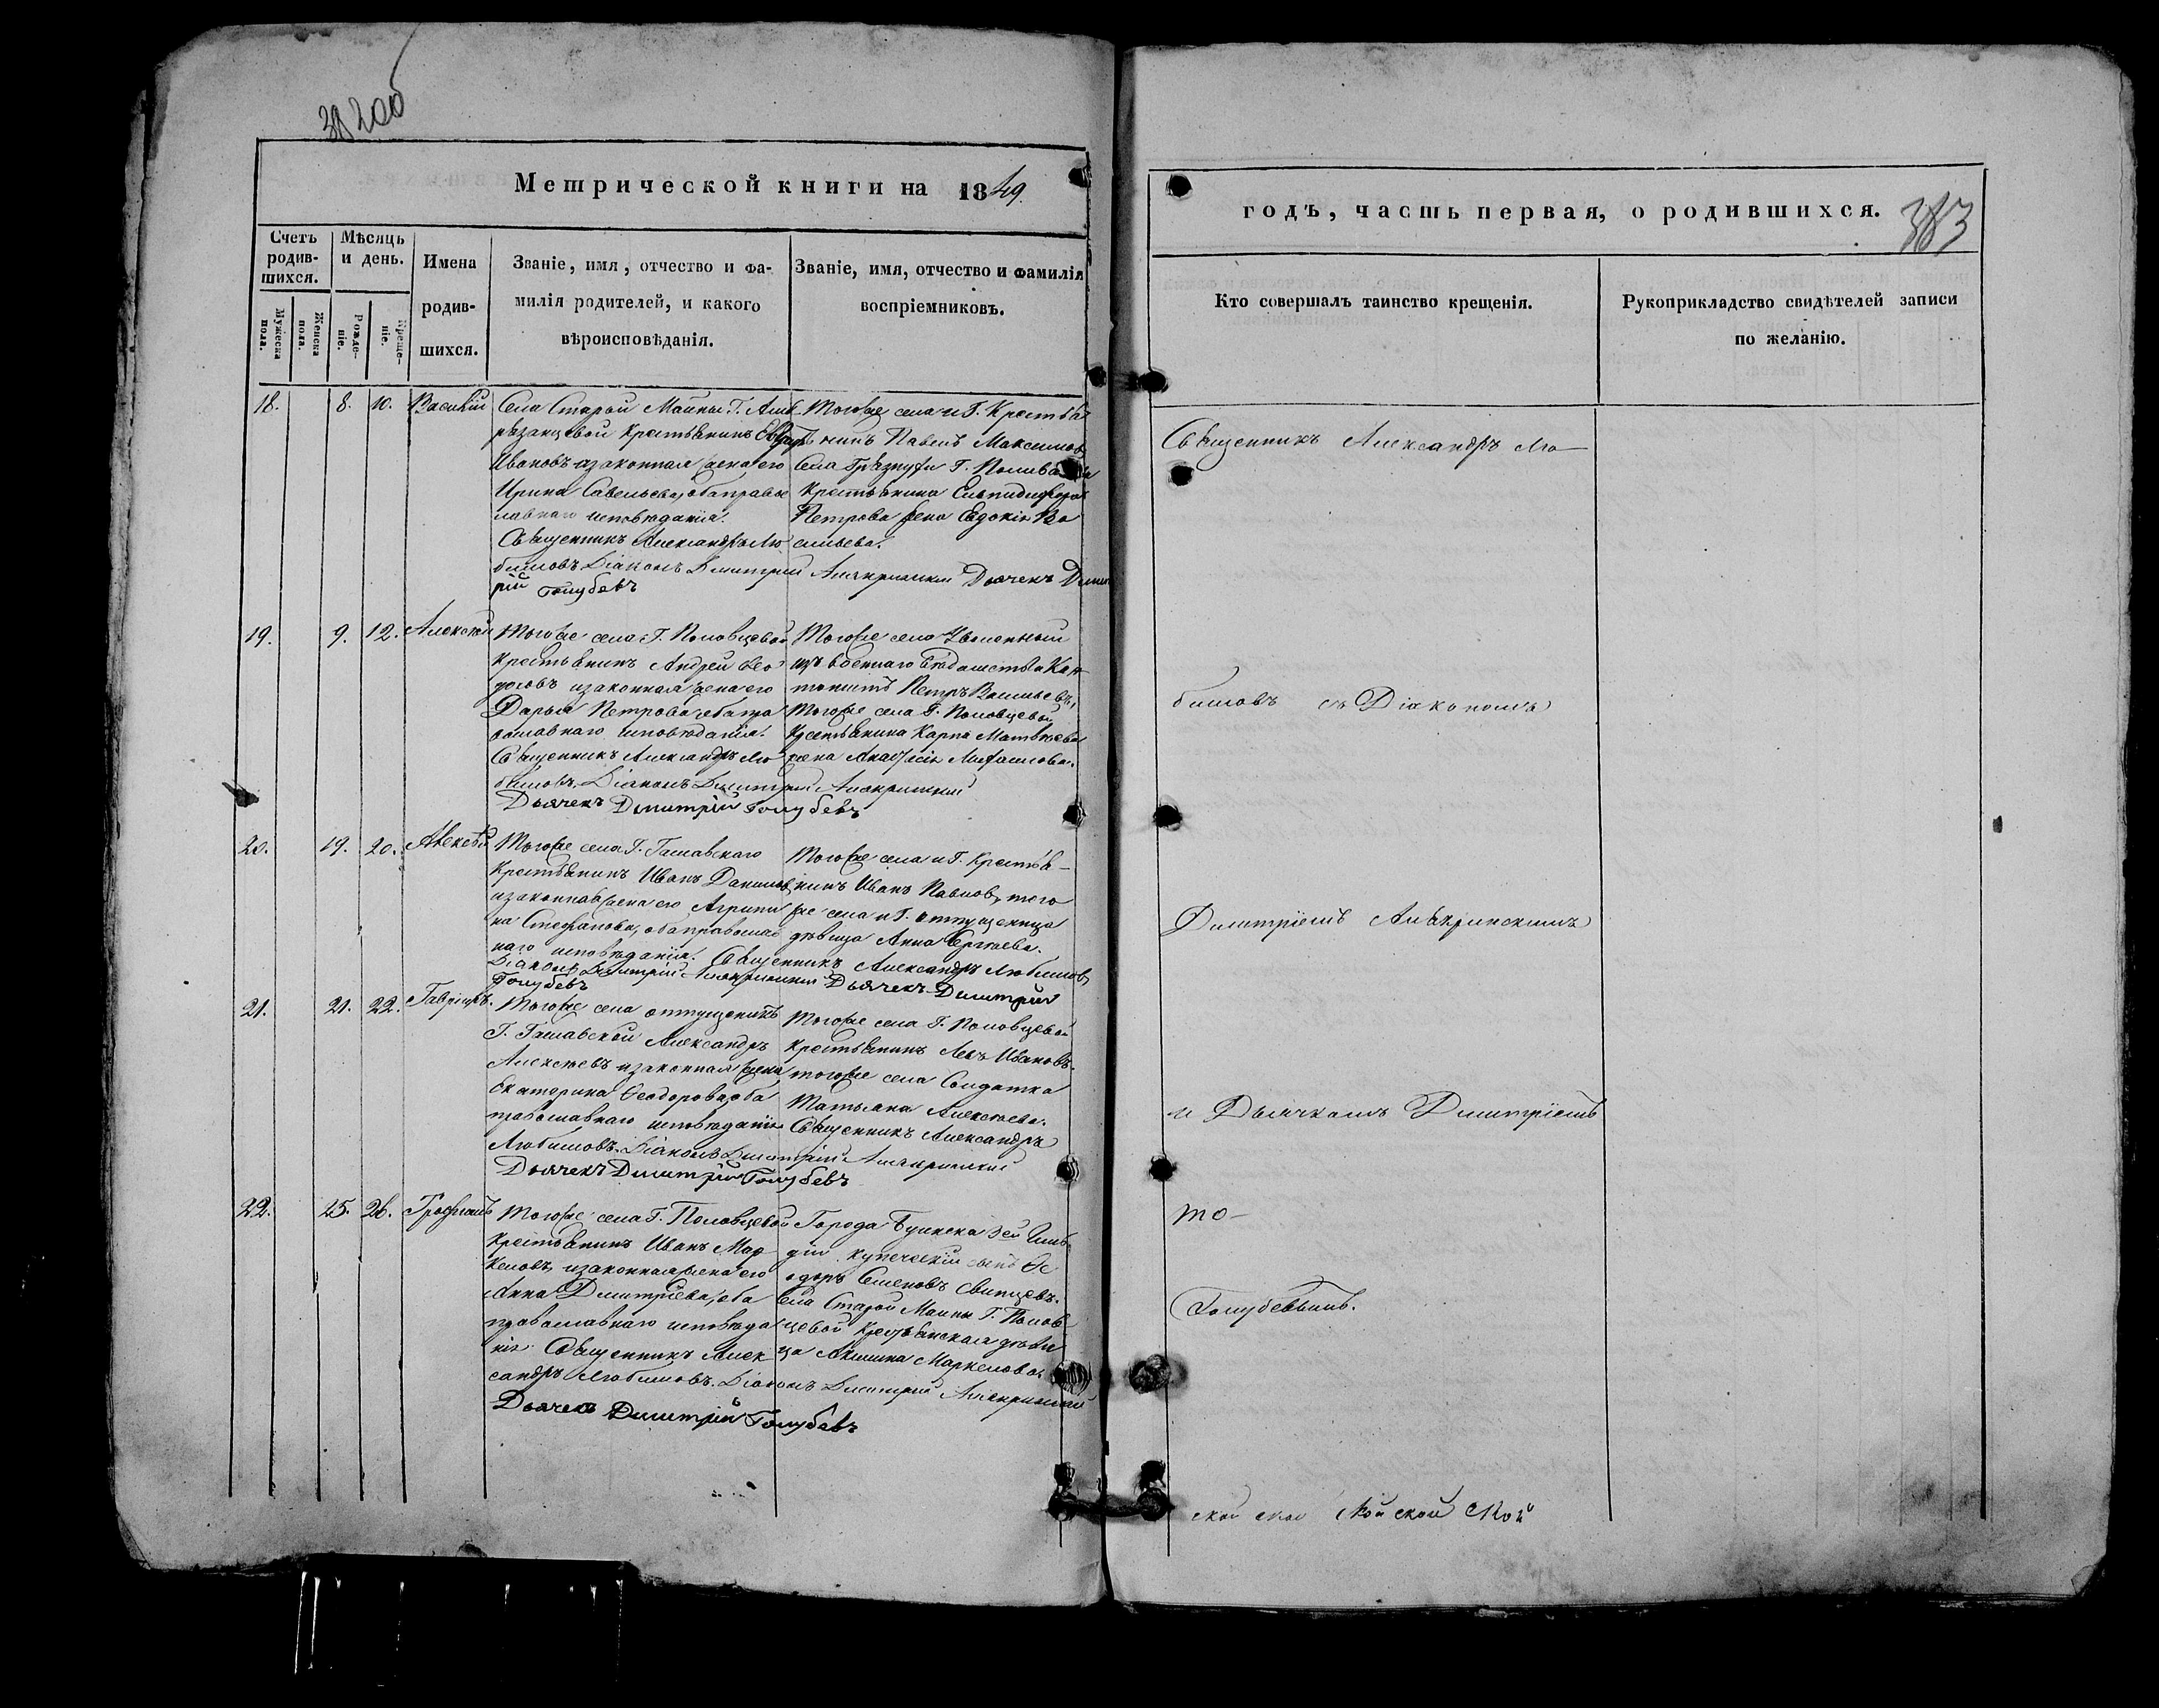 Метрической книги на 1849
Счетъ родив-шихся.
Мужеска пола.
Женска пола.
Мѣсяцъ и день.
Рожде-ніе.
Креще-ніе.
Имена родив-шихся.
Званіе, имя, отчество и фа-
милія родителей, и какого
вѣроисповѣданія.
Званіе, имя, отчество и фамилія
воспріемниковъ.
18. 8. 10. Василій
Села Старой Майны Г.
крестьянинъ
Ивановъ изаконная жена его
Ирина Савельева, оба правос
лавнаго исповѣданія.
Священникъ Александръ Лю
бимовъ Діаконъ Димитрій Дьячекъ Димит
рій Голубевъ
Тогоже села и Г. Крестья
нинъ Павелъ Максимовъ
Села Грязнухи Г.
Крестьянина Елпидифора
Петрова жена Евдокія Ва
сильева.
19. 9. 12. Алексѣй
Тогоже села Г. Половцевой
крестьянинъ Андрей Ѳео
доровъ изаконная жена его
Дарья Петрова оба пра
вославнаго исповѣданія.
Священникъ Александръ Лю
бимовъ. Діаконъ Димитрій
Дьячекъ Димитрій Голубевъ
Тогоже села Уволенный
изъ военнаго вѣдомства Кан
тонистъ Петръ Васильевъ,
Тогоже села Г. Половцевой
Крестьянина Карпа Матвѣева
жена
20. 19. 20. Алексѣй
Тогоже села Г.
Крестьянинъ Иванъ Даниловъ
изаконная жена его Агрипи
на Стефанова, оба православ
наго исповѣданія. Священникъ Александръ Любимовъ
Діаконъ Димитрій Дьячекъ Димитрій
Голубевъ
Тогоже села и Г. Крестья-
нинъ Иванъ Павловъ, того
же села и Г. отпущенница
дѣвица Анна Сергѣева.
21. 21. 22. Гавріилъ.
Тогоже села отпущеникъ
Г. Александръ
Алексѣевъ изаконная жена
Екатерина Ѳеодорова, оба
православнаго исповѣданія
Любимовъ. Діаконъ Димитрій
Дьячекъ Димитрій Голубевъ
Тогоже села Г. Половцевой
крестьянинъ Левъ Ивановъ.
тогоже села Солдатка
Татьяна Алексѣева.
Священникъ Александръ
22. 25. 26. Трофимъ
Тогоже села Г. Половцевой
Крестьянинъ Иванъ Мар
келовъ, изаконная жена его
Анна Димитріева, оба
православнаго исповѣда
нія. Священникъ Алек
сандръ Любимовъ. Діаконъ Димитрій
Дьячекъ Димитрій Голубевъ
Города Буинска 3ей Гиль
діи купеческій сынъ Ѳе
одоръ Семеновъ Свинцевъ.
Села Старой Майны Г. Полов
цевой Крестьянская дѣви
ца Акилина Маркелова.
годъ, часть первая, о родившихся.
383
Кто совершалъ таинство крещенія.
Рукоприкладство свидѣтелей записи
по желанію.
Священникъ Александръ Лю-
бимовъ съ Діакономъ
Димитріемъ
и Дьячкомъ Димитріемъ
то-
Голубевымъ.
ской ской ской ской ской